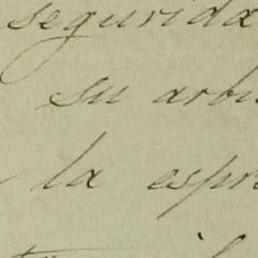 segurida
su arbi
la espr